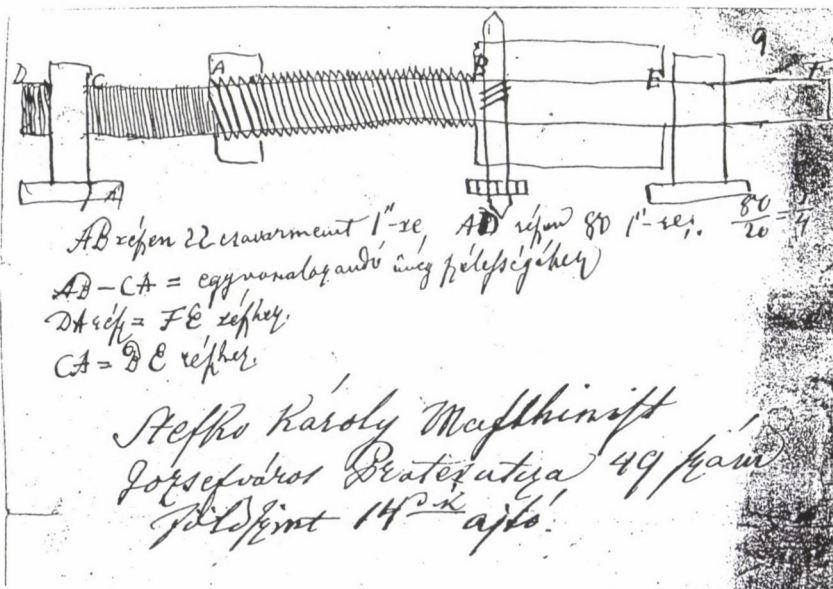 9
D C A B E F
A
AB részen 22 csavarmenet 1"-re, AD részen 80 1"-re; 80/20 = 1/4
AB – CA = egy vonalozandó üveg szélességéhez
DA rész = FE részhez.
CA = BE részhez.
Stefko Károly Maschinist
Jozsefváros utcza 49 szám
földszint 14 ajtó.